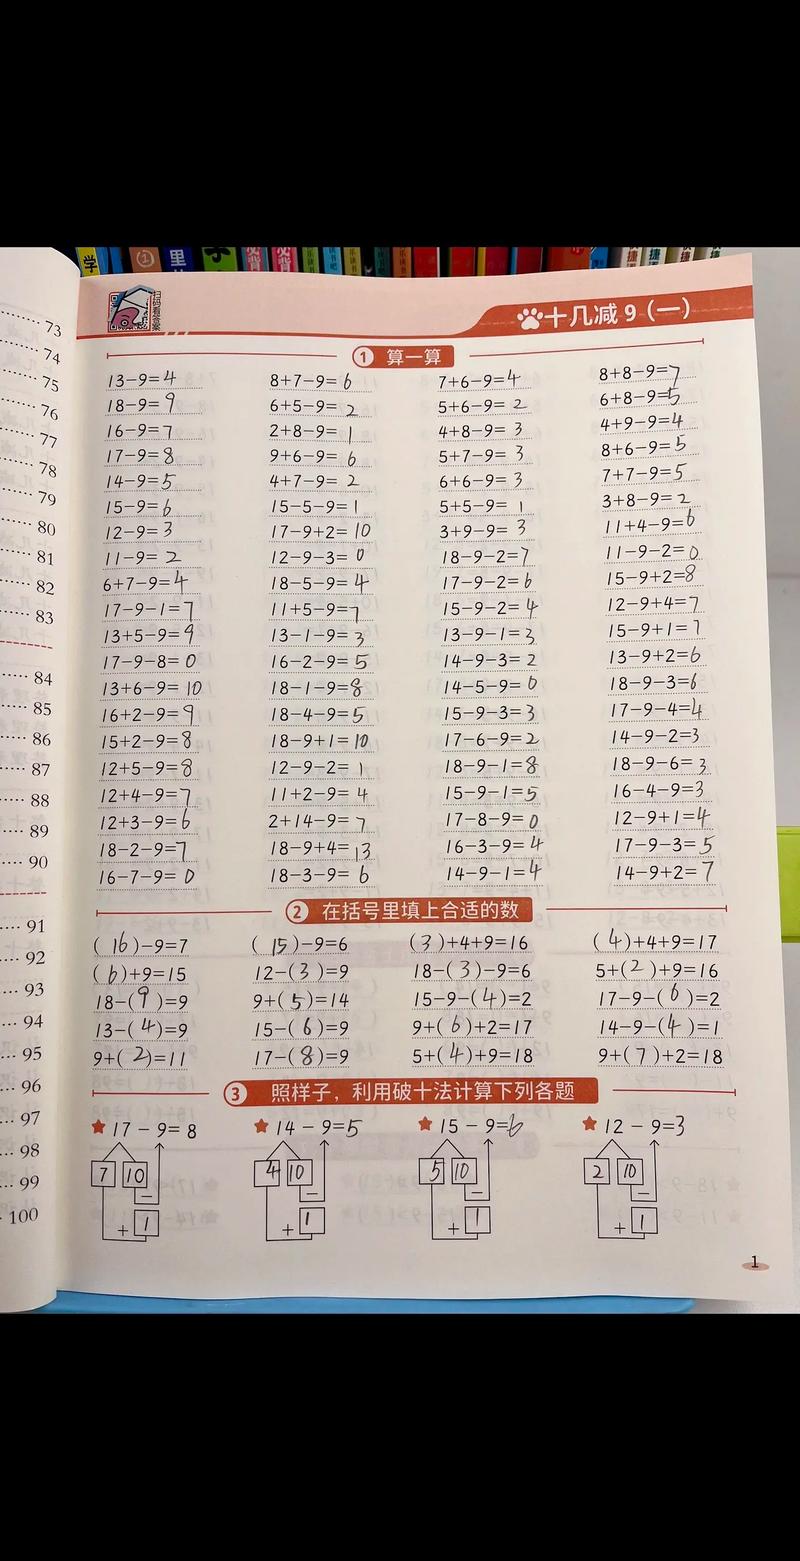 学
①
里
必背
必背
乐读书吧
乐读书
乐读书
快捷
快捷
73
74
75
76
77
78
79
80
81
82
83
84
85
86
87
88
89
90
91
92
93
94
95
96
97
98
99
100
扫码看答案
十几减9(一)
① 算一算
13-9=4 8+7-9=6 7+6-9=4 8+8-9=7
18-9=9 6+5-9=2 5+6-9=2 6+8-9=5
16-9=7 2+8-9=1 4+8-9=3 4+9-9=4
17-9=8 9+6-9=6 5+7-9=3 8+6-9=5
14-9=5 4+7-9=2 6+6-9=3 7+7-9=5
15-9=6 15-5-9=1 5+5-9=1 3+8-9=2
12-9=3 17-9+2=10 3+9-9=3 11+4-9=6
11-9=2 12-9-3=0 18-9-2=7 11-9-2=0
6+7-9=4 18-5-9=4 17-9-2=6 15-9+2=8
17-9-1=7 11+5-9=7 15-9-2=4 12-9+4=7
13+5-9=9 13-1-9=3 13-9-1=3 15-9+1=7
17-9-8=0 16-2-9=5 14-9-3=2 13-9+2=6
13+6-9=10 18-1-9=8 14-5-9=0 18-9-3=6
16+2-9=9 18-4-9=5 15-9-3=3 17-9-4=4
15+2-9=8 18-9+1=10 17-6-9=2 14-9-2=3
12+5-9=8 12-9-2=1 18-9-1=8 18-9-6=3
12+4-9=7 11+2-9=4 15-9-1=5 16-4-9=3
12+3-9=6 2+14-9=7 17-8-9=0 12-9+1=4
18-2-9=7 18-9+4=13 16-3-9=4 17-9-3=5
16-7-9=0 18-3-9=6 14-9-1=4 14-9+2=7
② 在括号里填上合适的数
(16)-9=7 (15)-9=6 (3)+4+9=16 (4)+4+9=17
(6)+9=15 12-(3)=9 18-(3)-9=6 5+(2)+9=16
18-(9)=9 9+(5)=14 15-9-(4)=2 17-9-(6)=2
13-(4)=9 15-(6)=9 9+(6)+2=17 14-9-(4)=1
9+(2)=11 17-(8)=9 5+(4)+9=18 9+(7)+2=18
③ 照样子，利用破十法计算下列各题
★17-9=8 ★14-9=5 ★15-9=6 ★12-9=3
7 10 4 10 5 10 2 10
- - - -
+ 1 + 1 + 1 + 1
1